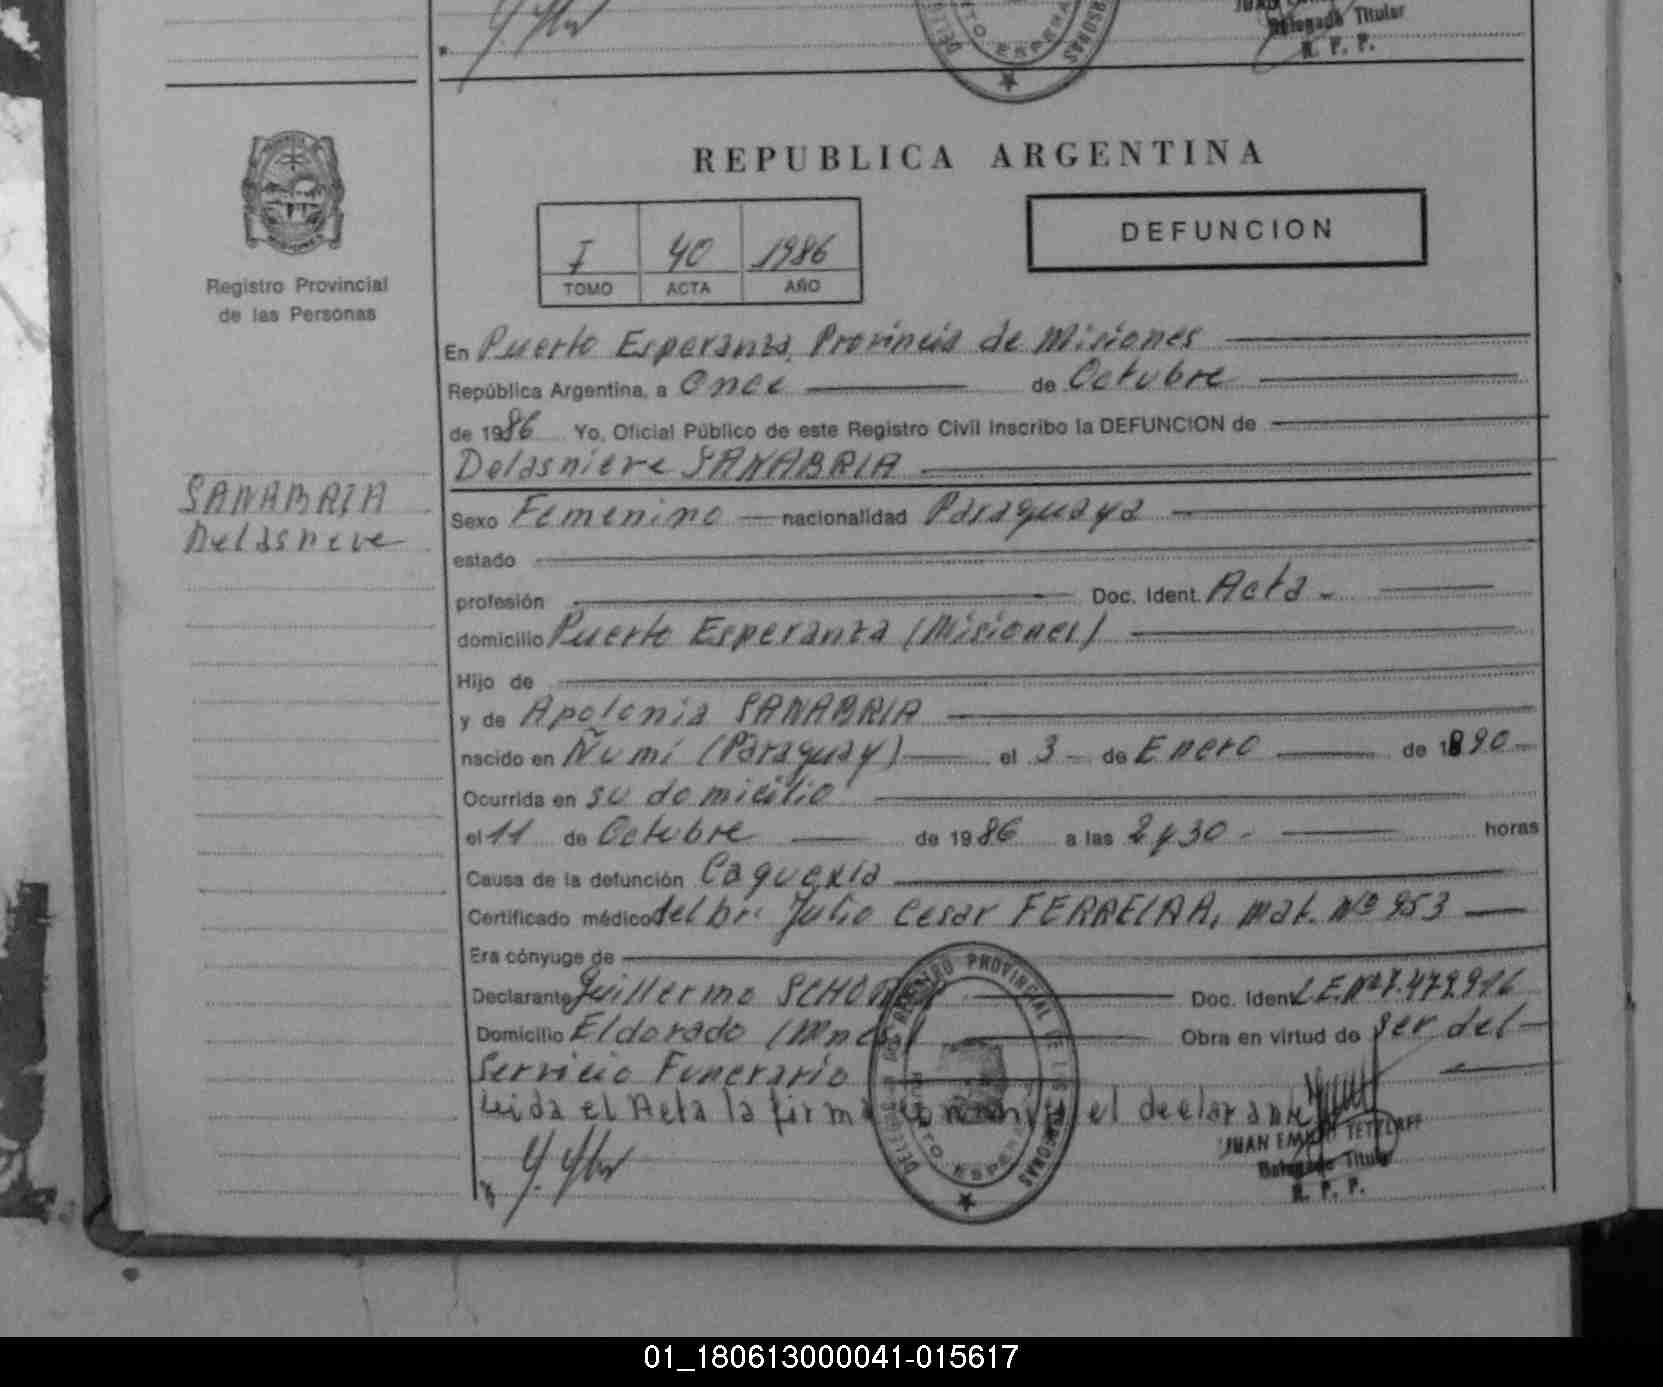 Delegado Titular
R. P. P.
REPUBLICA ARGENTINA
I 40 1986
TOMO ACTA AÑO
DEFUNCION
Registro Provincial
de las Personas
En Puerto Esperanza, Provincia de Misiones
República Argentina, a Once de Octubre
de 1986 Yo, Oficial Público de este Registro Civil Inscribo la DEFUNCION de
Delasnieve SANABRIA
SANABRIA
Delasnieve
Sexo Femenino nacionalidad Paraguaya
estado
profesión Doc. Ident. Acta
domicilio Puerto Esperanza (Misiones)
Hijo de
y de Apolonia SANABRIA
nacido en Ñumí (Paraguay) el 3 de Enero de 1890
Ocurrida en su domicilio
el 11 de Octubre de 1986 a las 2 y 30 horas
Causa de la defunción Caquexia
Certificado médico del Dr. Julio Cesar FERREIRA, Mat. Nº 953
Era cónyuge de
Declarante Guillermo Doc. Ident. L.E.Nº 7.479.916
Domicilio Eldorado (Mnes) Obra en virtud de ser del
Servicio Funerario
Leida el Acta la firma conmigo el declarante
DELEGACION DEL REGISTRO PROVINCIAL DE LAS PERSONAS
PUERTO ESPERANZA
JUAN EMILIO TETZLAFF
Delegado Titular
R. P. P.
01_180613000041-015617